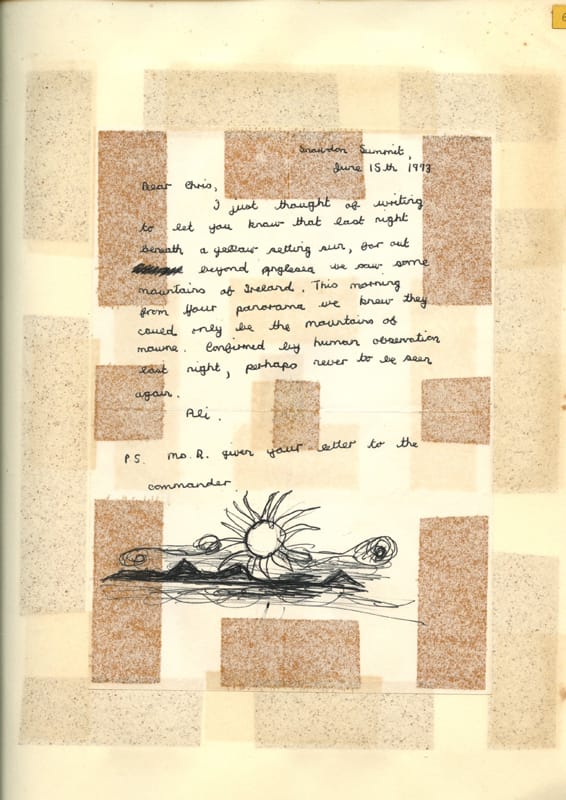 Snowdon Summit,
June 15th 1973
Dear Chris,
I just thought of writing
to let you know that last night
beneath a yellow setting sun, far out
beyond Anglesea we saw some
mountains of Ireland. This morning
from your panorama we knew they
could only be the mountains of
mourne. Confirmed by human observation
last night, perhaps never to be seen
again.
Ali.
PS. Mo. R. given your letter to the
commander.
6